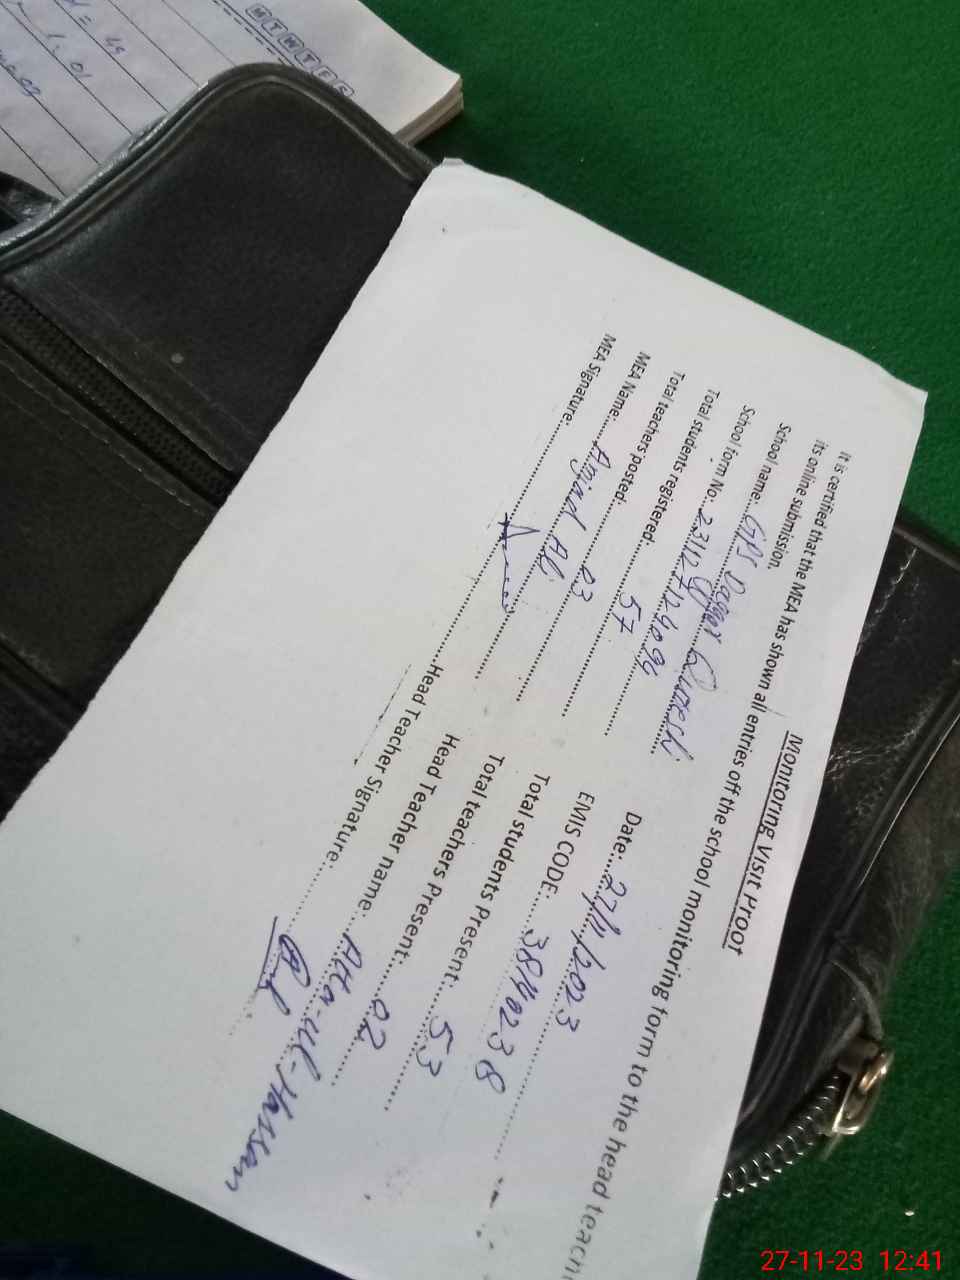 M T W T F S
Monitoring Visit Proof
It is certified that the MEA has shown all entries off the school monitoring form to the head teach
its online submission.
Date: 27/11/2023
School name: GPS Qureshi
EMIS CODE: 38140238
School form No: 231127124094
Total students present: 53
Total students registered: 57
Total teachers Present: 02
Total teachers posted: 03
Head Teacher name: Atta-ul-Hassan
MEA Name: Amjad Ali
Head Teacher Signature:
MEA Signature:
27-11-23 12:41